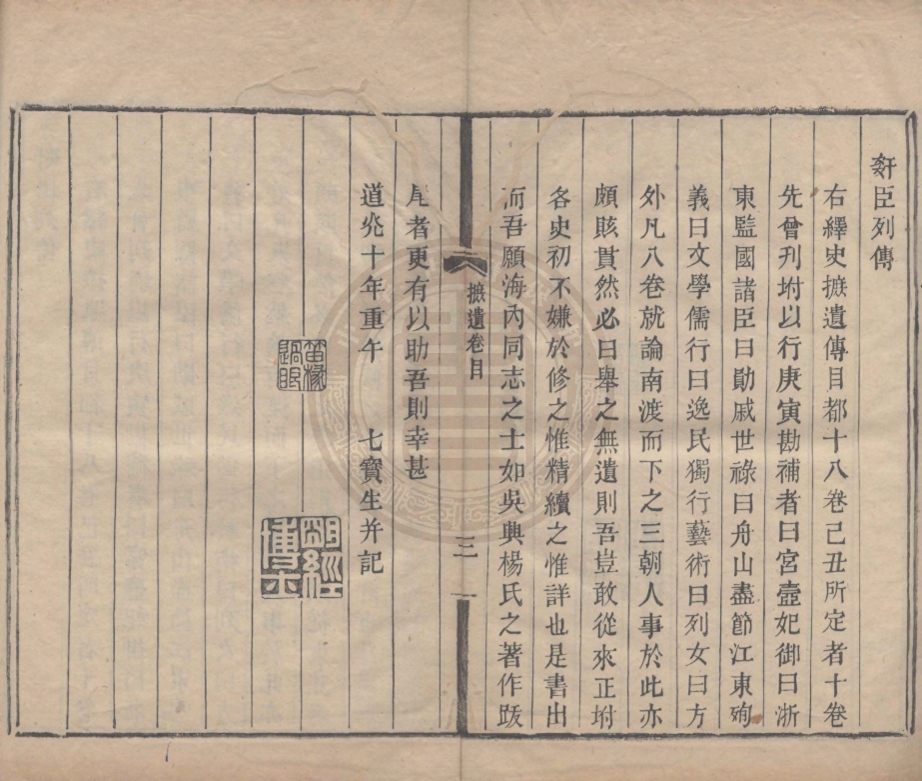 姧臣列傳
右繹史摭遺傳目都十八卷己丑所定者十卷
先曾刋坿以行庚寅勘補者曰宮壼妃御曰浙
東監國諸臣曰勛戚世祿曰舟山盡節江東殉
義曰文學儒行曰逸民獨行藝術曰列女曰方
外凡八卷就論南渡而下之三朝人事於此亦
頗賅貫然必曰舉之無遺則吾豈敢從來正坿
各史初不嫌於修之惟精續之惟詳也是書出
而吾願海內同志之士如吳興楊氏之著作跋
摭遺卷目
三
尾者更有以助吾則幸甚
道光十年重午 七寶生并記
明經博士